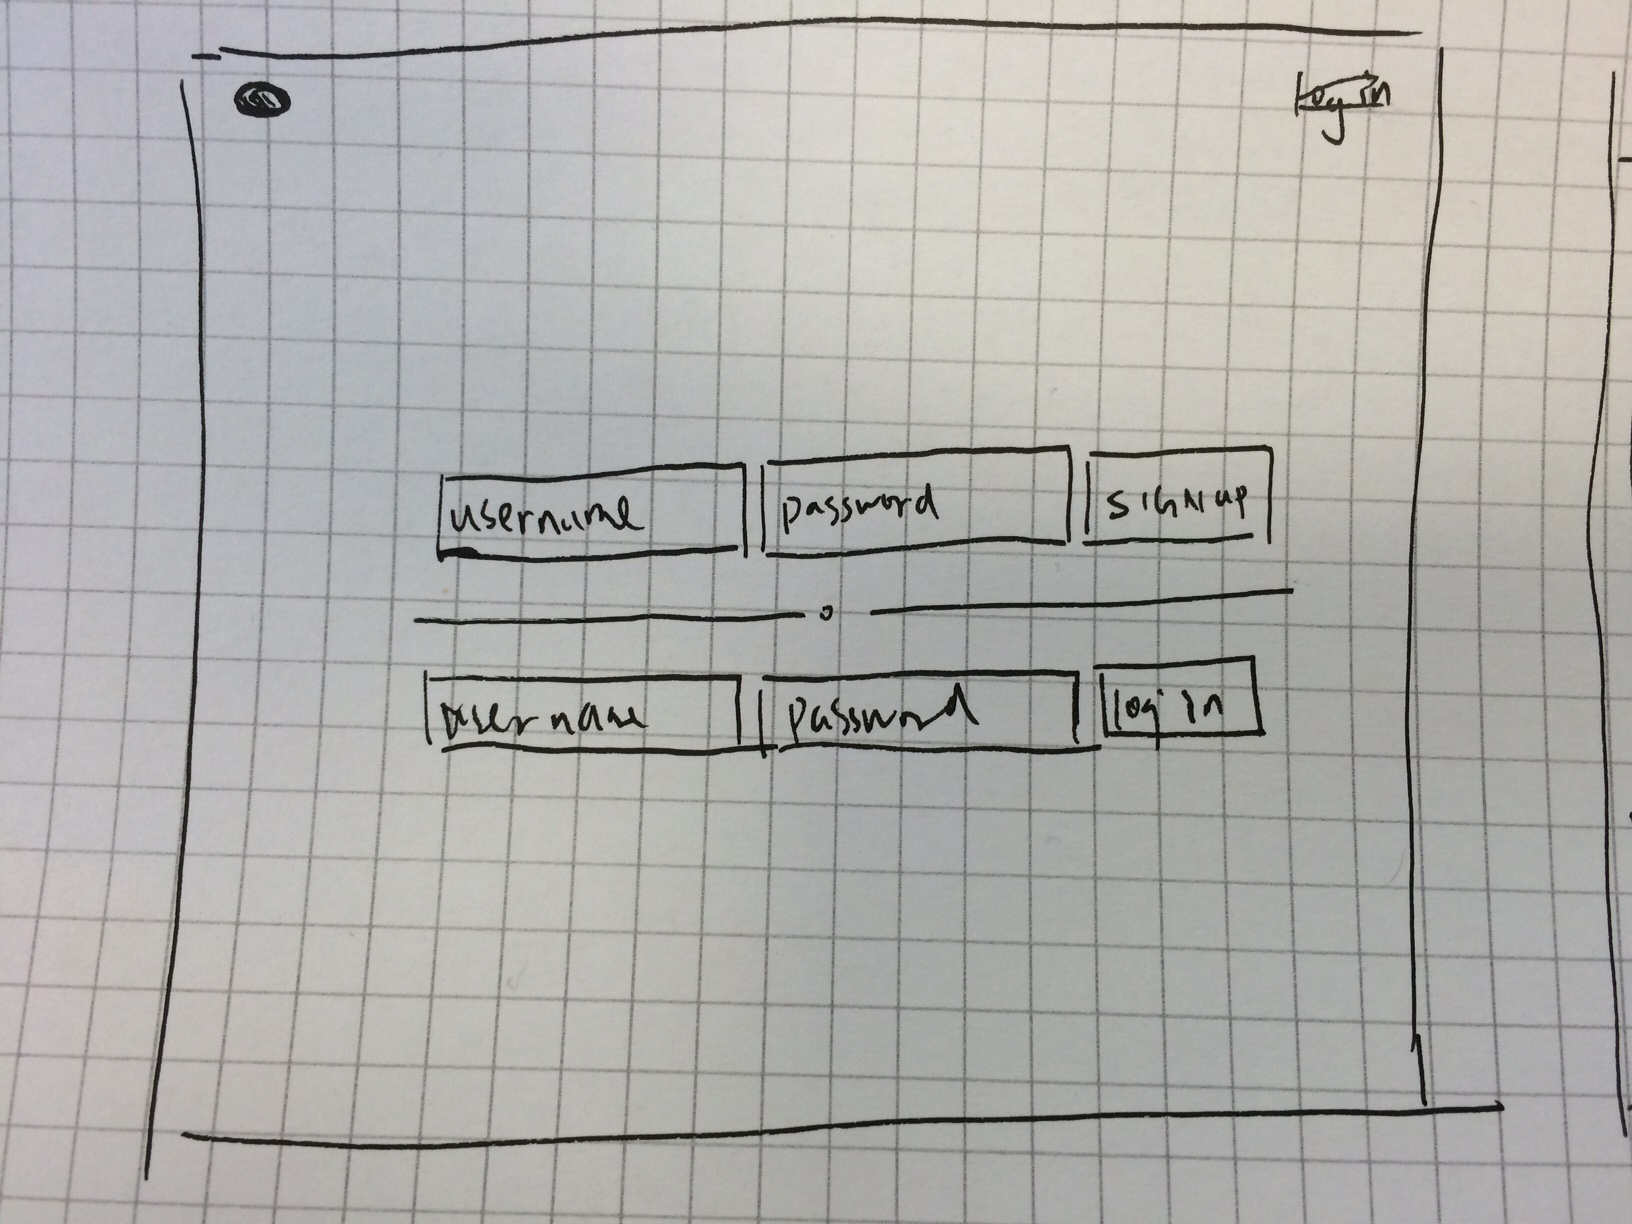 Log in
username password SIGN up
o
username password log in